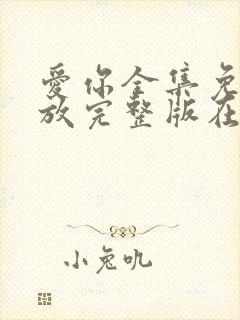 爱你全集免
放完整版在
小兔叽